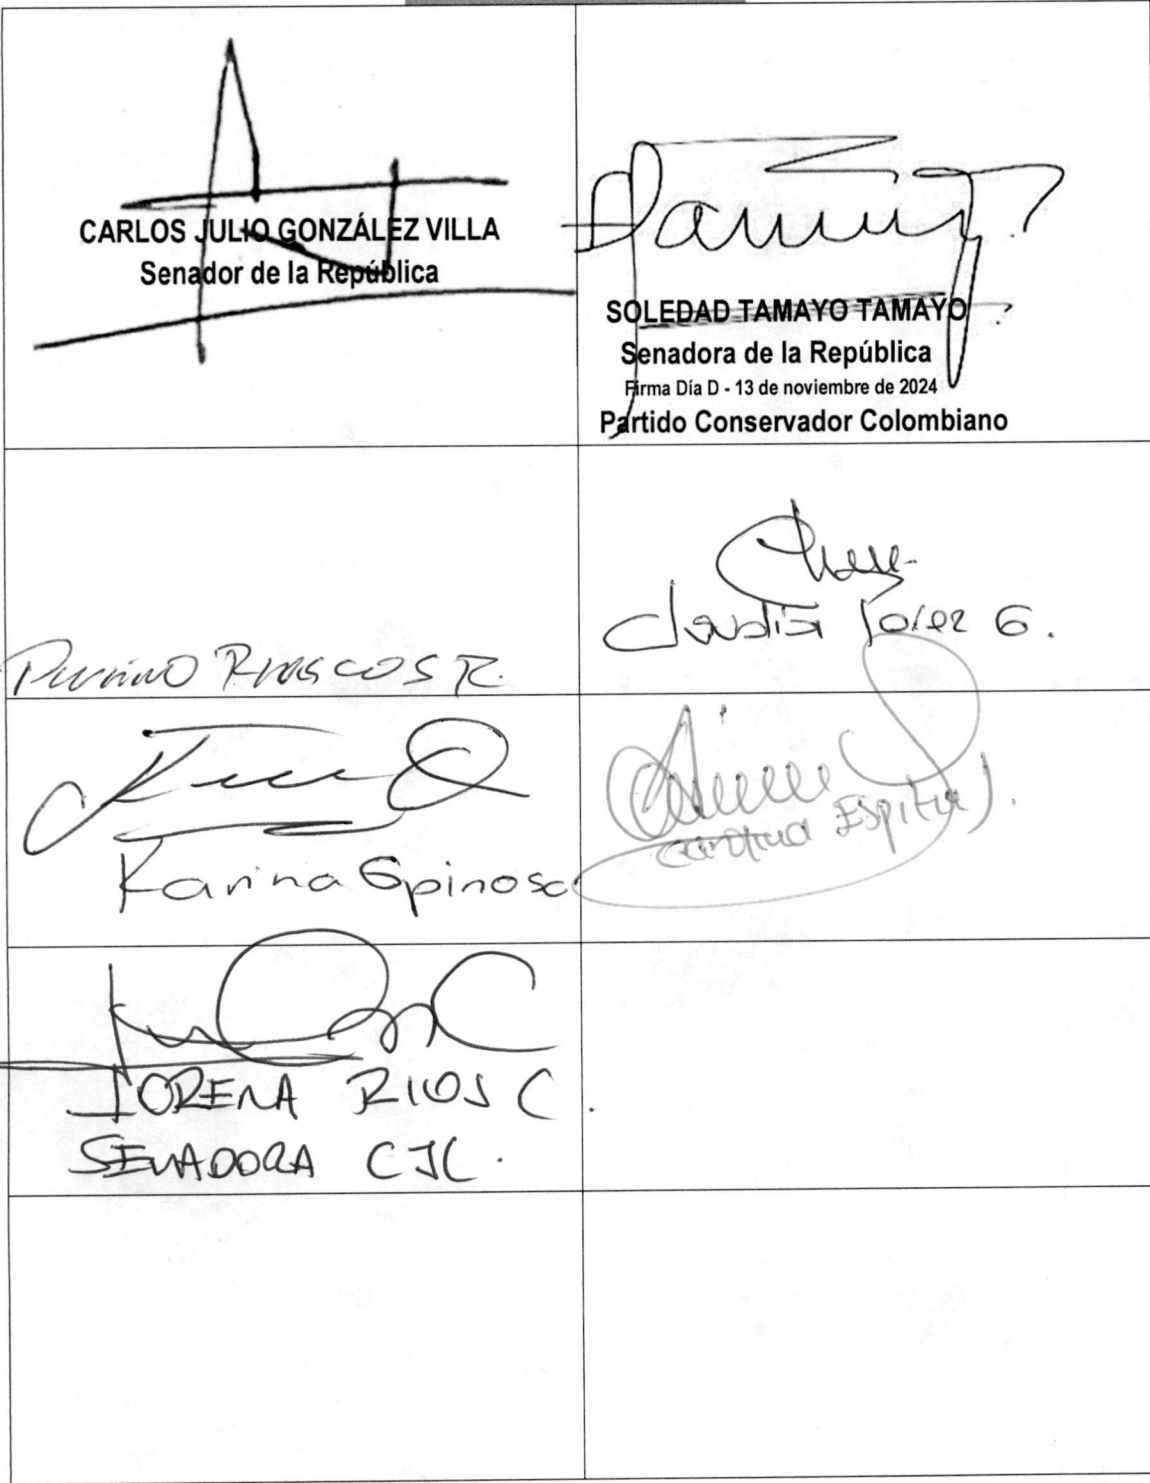 CARLOS JULIO GONZÁLEZ VILLA
Senador de la República
Tamayo
SOLEDAD TAMAYO TAMAYO
Senadora de la República
Firma Día D - 13 de noviembre de 2024
Partido Conservador Colombiano
RIASCOS R.
Claudia Pérez G.
Karina Espinosa
Carolina Espitia J.
LORENA RIOS C.
SENADORA CJL.